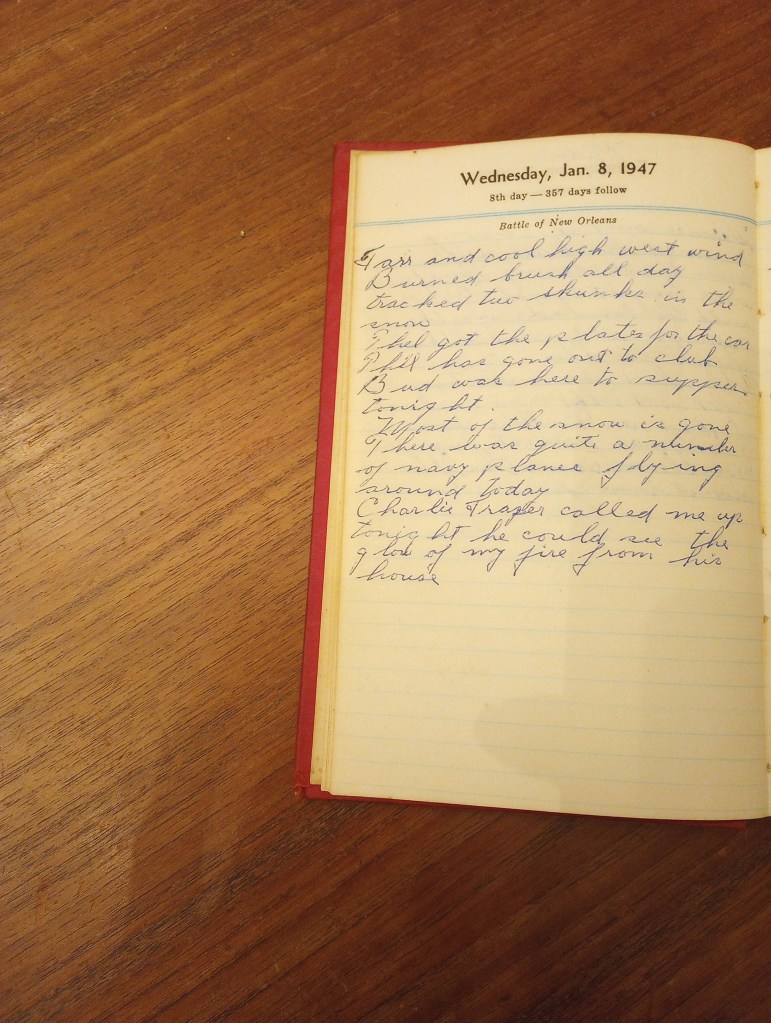 Wednesday, Jan. 8, 1947
8th day — 357 days follow
Battle of New Orleans
and cool high west wind
Burned brush all day
tracked two skunks in the
snow
Phel got the plates for the car
Phil has gone out to club
Bud was here to supper
tonight.
Most of the snow is gone
There was quite a number
of navy planes flying
around today
Charlie called me up
tonight he could see the
glow of my fire from his
house